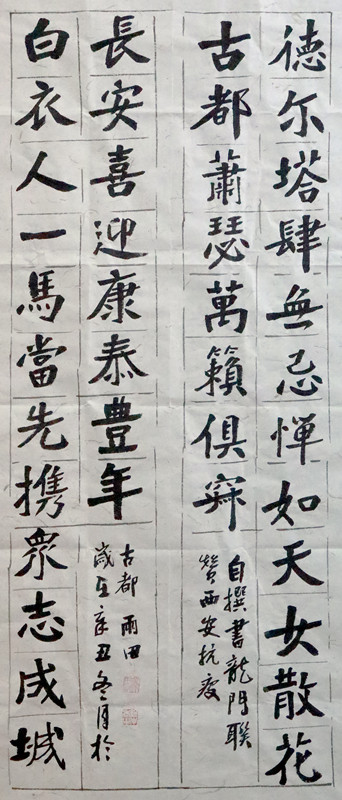 德尔塔肆無忌惮如天女散花
古都蕭瑟萬籟俱寂
自撰書龍門联
贊西安抗疫
白衣人一馬當先携衆志成城
長安喜迎康泰豐年
歲在辛丑冬月於
古都 雨田